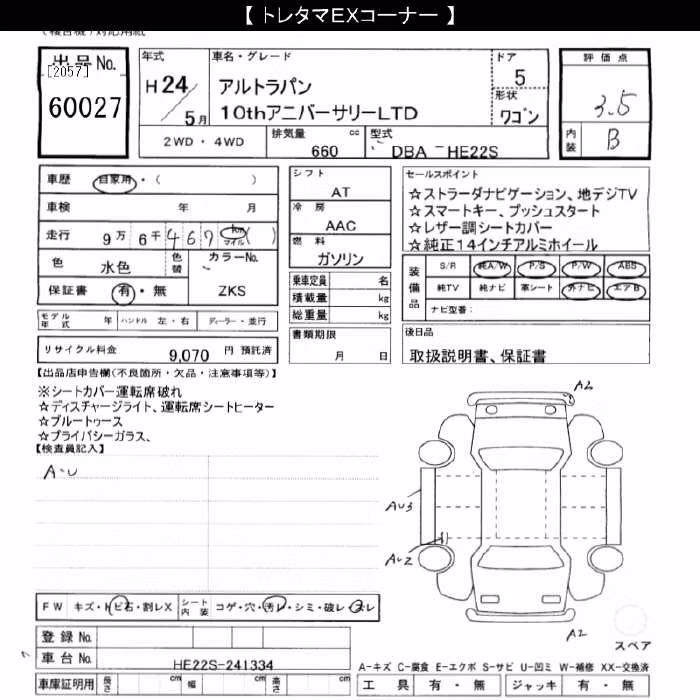 【 トレタマEXコーナー 】
出品No.
[2057]
60027
年式
H 24 / 5月
車名・グレード
アルトラパン
10thアニバーサリーLTD
ドア
5
形状
ワゴン
評価点
3.5
内装
B
2WD ・ 4WD
排気量 cc
660
型式
DBA - HE22S
車歴 自家用・( )
車検 年 月
走行 9万 6千 4 6 7 km マイル ( )
色 水色 色替
カラーNo.
ZKS
保証書 有・無
モデル年式 年 ハンドル 左・右 ディーラー・並行
リサイクル料金 9,070 円 預託済
シフト
AT
冷房
AAC
燃料
ガソリン
乗車定員 名
積載量 kg
総重量 kg
書類期限
月 日
セールスポイント
☆ストラーダナビゲーション、地デジTV
☆スマートキー、プッシュスタート
☆レザー調シートカバー
☆純正14インチアルミホイール
装備品
S/R 純A/W P/S P/W ABS
純TV 純ナビ 革シート 外ナビ エアB
ナビ型番：
後日品
取扱説明書、保証書
【出品店申告欄(不良箇所・欠品・注意事項等)】
※シートカバー運転席破れ
☆ディスチャージライト、運転席シートヒーター
☆ブルートゥース
☆プライバシーガラス、
【検査員記入】
A・U
A2
AU3
AU2
A2
スペア
FW キズ・トビ石・割レX シート内装 コゲ・穴・汚レ・シミ・破レ・スレ
登録No.
車台No. HE22S-241334
車庫証明用 長さ cm 幅 cm 高さ cm
A-キズ C-腐食 E-エクボ S-サビ U-凹ミ W-補修 XX-交換済
工具 有・無 ジャッキ 有・無